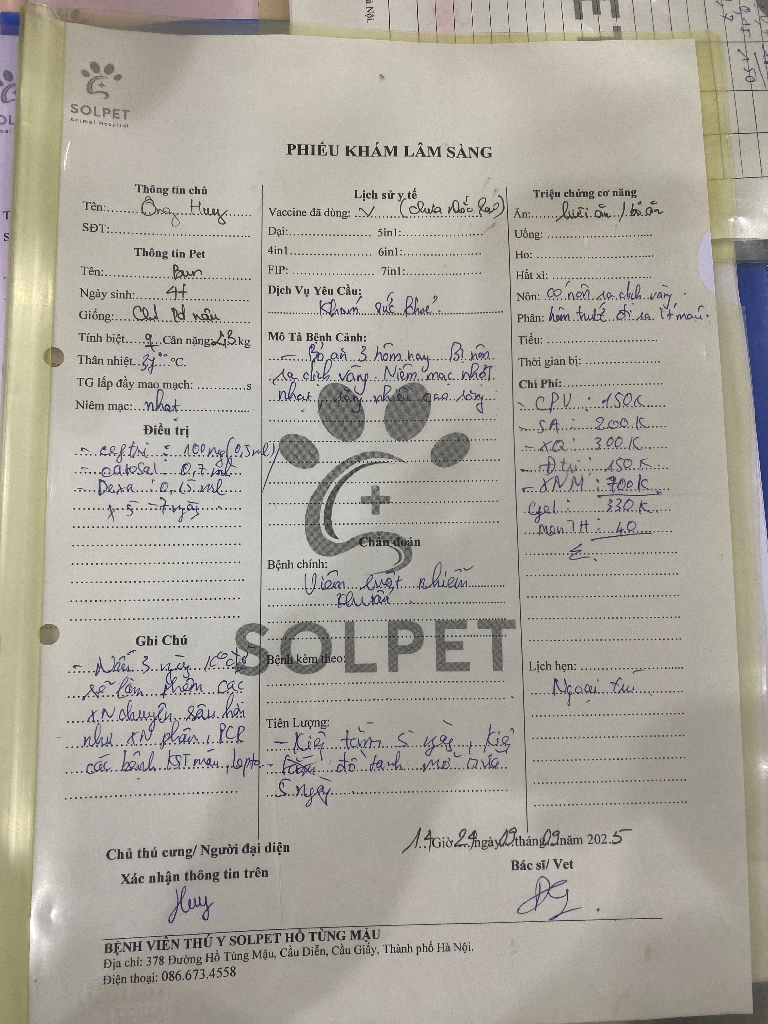 SOLPET
Animal Hospital
PHIẾU KHÁM LÂM SÀNG
Thông tin chủ
Tên: Ông Huy
SĐT:
Thông tin Pet
Tên: Bun
Ngày sinh: 4t
Giống: Chó Pd nâu
Tính biệt: ♀ Cân nặng: kg
Thân nhiệt: °C.
TG lấp đầy mao mạch: s
Niêm mạc: nhạt
Điều trị
- ceftri = 100mg (0,5ml)
- catosal 0,7 ml
- Dexa : 0,15 ml
x 5 - 7 ngày
Ghi Chú
- Nếu 3 ngày đỡ
sẽ làm thêm các
XN chuyên sâu hơn
như XN phân, PCR
các bệnh KST máu, lepto
Lịch sử y tế
Vaccine đã dùng: V (chưa
Dại: 5in1:
4in1 6in1:
FIP: 7in1:
Dịch Vụ Yêu Cầu:
Khám sức khoẻ
Mô Tả Bệnh Cảnh:
- Bỏ ăn 3 hôm nay. Bị nôn
ra dịch vàng. Niêm mạc nhợt
nhạt
Chẩn đoán
Bệnh chính:
Viêm ruột nhiễm
khuẩn
SOLPET
Bệnh kèm theo:
Tiên Lượng:
- Kiêng tắm 5 ngày, Kiêng
đồ tanh mỡ sữa
5 ngày
Triệu chứng cơ năng
Ăn: lười ăn / bỏ ăn
Uống:
Ho:
Hắt xì:
Nôn: có nôn ra dịch vàng.
Phân: hôm trước đi ra ít máu.
Tiểu:
Thời gian bị:
Chi Phí:
- CPV : 150K
- SA : 200K
- XQ : 300K
- Đtrị : 150K
- XNM : 700K
Gel : 330K
men TH : 40
Lịch hẹn:
Ngoại trú
Chủ thú cưng/ Người đại diện
Xác nhận thông tin trên
Huy
14 Giờ 24 ngày 09 tháng 09 năm 2025
Bác sĩ/ Vet
BỆNH VIỆN THÚ Y SOLPET HỒ TÙNG MẬU
Địa chỉ: 378 Đường Hồ Tùng Mậu, Cầu Diễn, Cầu Giấy, Thành phố Hà Nội.
Điện thoại: 086.673.4558